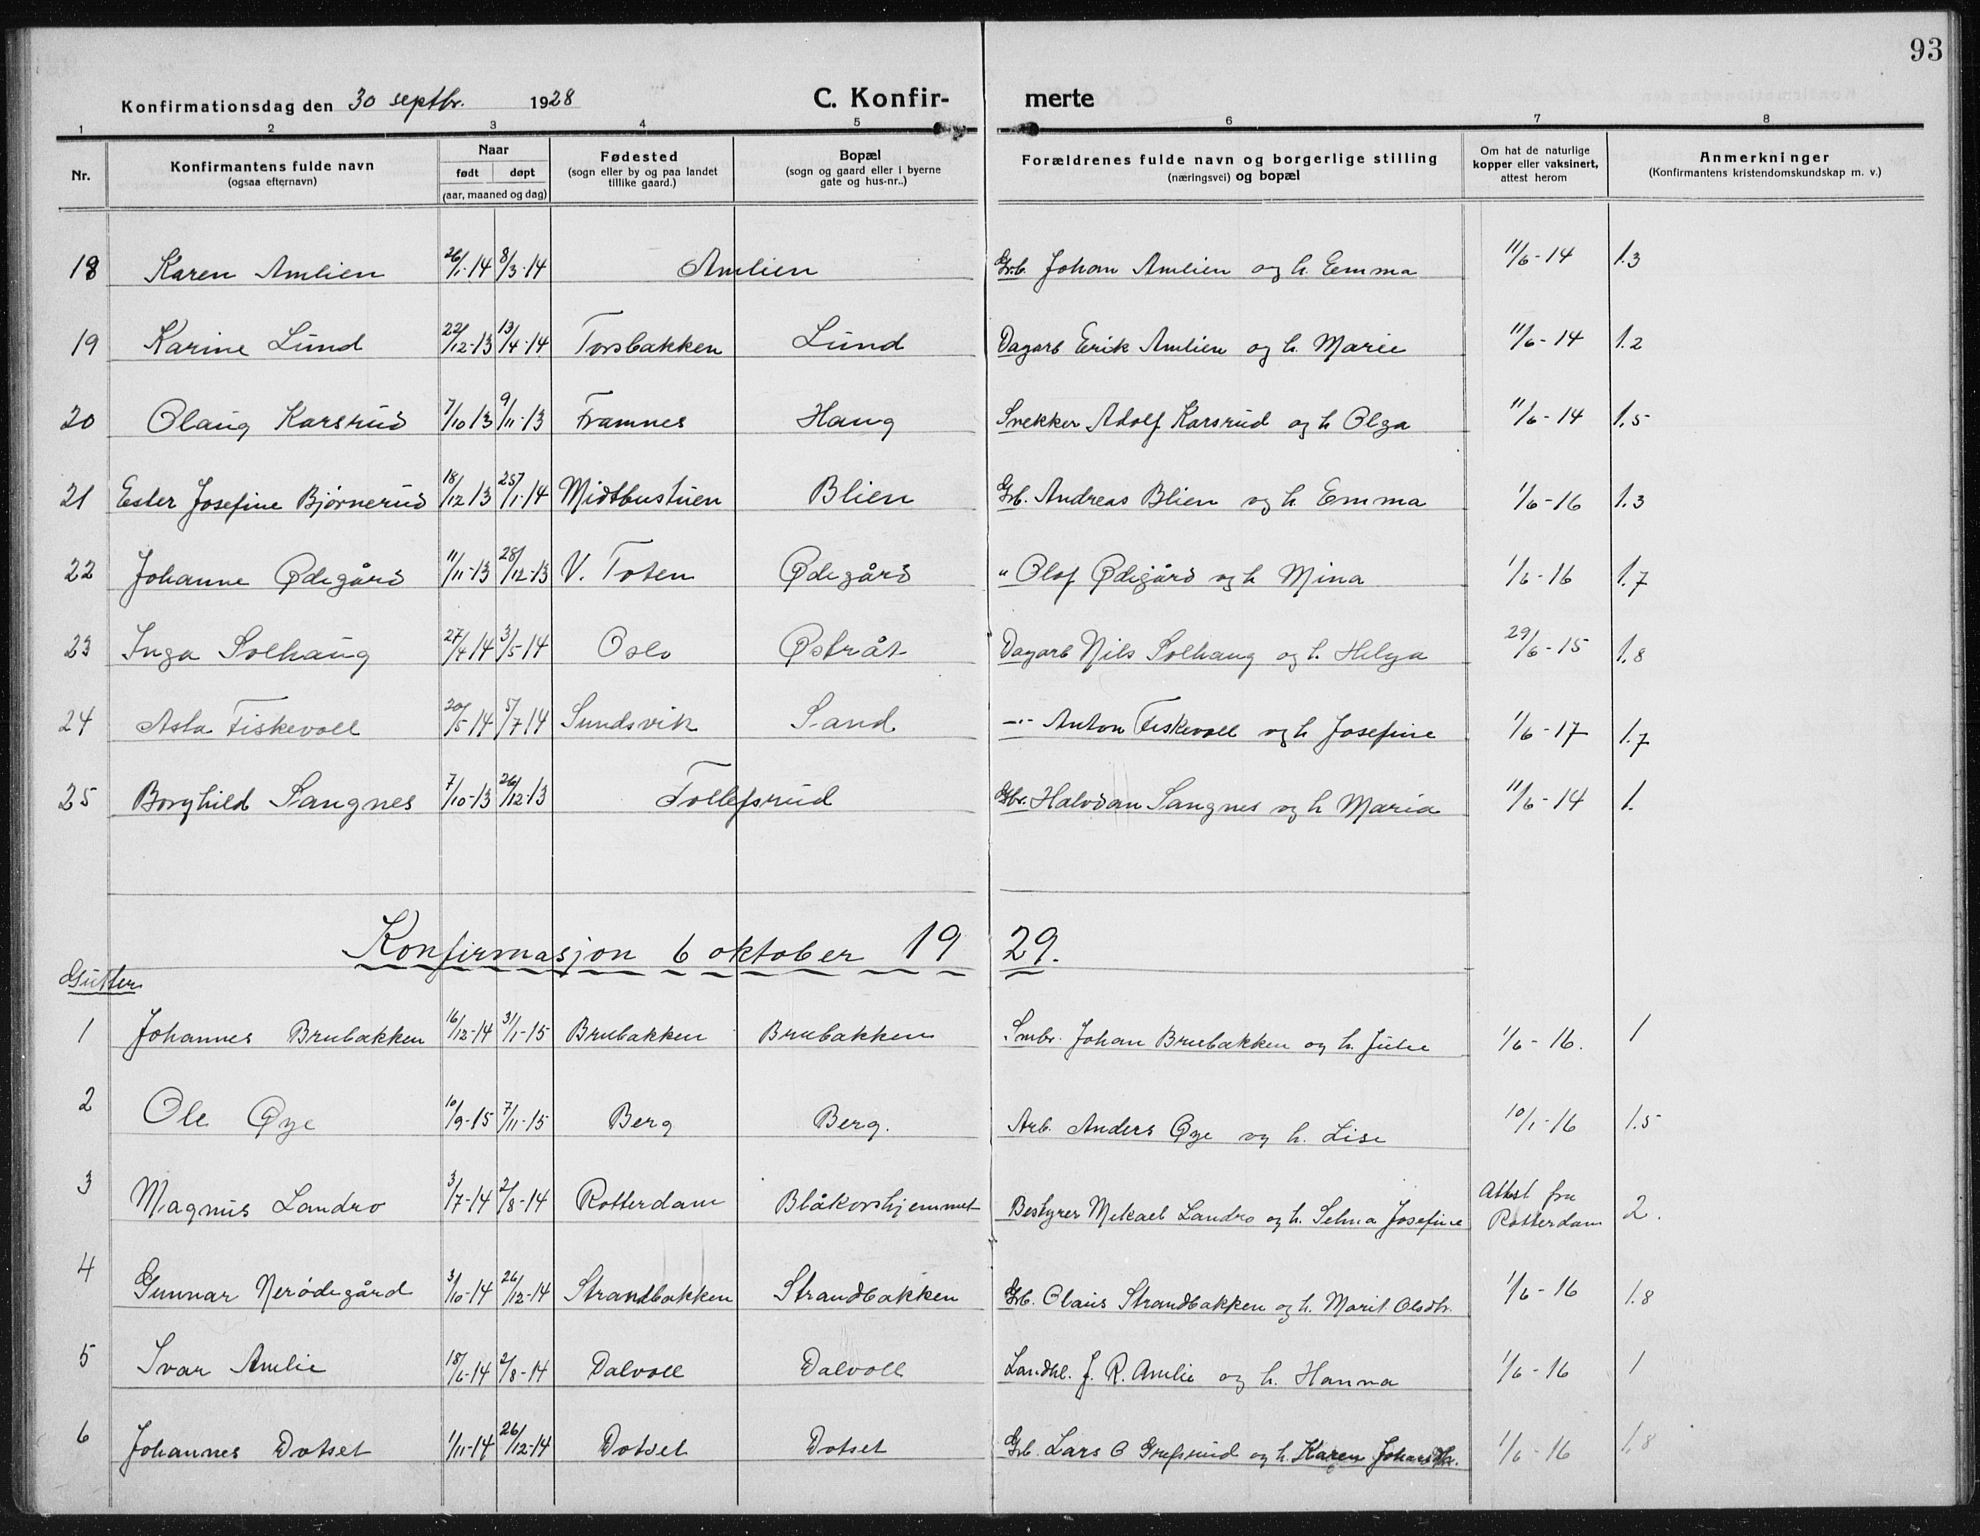 93
Konfirmationsdag den 30 septbr. 1928 C. Konfirmerte
1 2 3 4 5 6 7 8
Nr. Konfirmantens fulde navn (ogsaa efternavn) Naar født døpt (aar, maaned og dag) Fødested (sogn eller by og paa landet tillike gaard.) Bopæl (sogn og gaard eller i byerne gate og hus-nr..) Forældrenes fulde navn og borgerlige stilling (næringsvei) og bopæl Om hat de naturlige kopper eller vaksinert, attest herom Anmerkninger (Konfirmantens kristendomskundskap m. v.)
18 Karen Amlien 26/1-14 8/3-14 Amlien Grb. Johan Amlien og h. Emma 11/6-14 1.3
19 Karine Lund 22/12-13 13/4-14 Torsbakken Lund Dagarb Erik Amlien og h. Marie 11/6-14 1.2
20 Olaug Karsrud 7/10 13 9/11-13 Framnes Haug Snekker Adolf Karsrud og h Olga 11/6-14 1.5
21 Ester Josefine Bjørnerud 18/12 13 25/1-14 Midtbustuen Blien Grb. Andreas Blien og h. Emma 1/6-16 1.3
22 Johanne Ødegård 11/11-13 28/12-13 V. Toten Ødegård " Olof Ødigård og h Mina 1/6-16 1.7
23 Inga Solhaug 27/4 14 3/5-14 Oslo Østråt Dagarb Nils Solhaug og h. Helga 29/6-15 1.8
24 Asta Fiskevoll 20/5 14 5/7 14 Sundsvik Sand -"- Anton Fiskevoll og h Josefine 1/6-17 1.7
25 Borghild Sangnes 7/10-13 26/12-13 Tollefsrud Gbr. Halvdan Sangnes og h Maria 11/6-14 1.
Konfirmasjon 6 oktober 1929.
Gutter
1 Johannes Brubakken 16/12-14 31/1-15 Brubakken Brubakken Smbr. Johan Brubakken og h. Julie 1/6-16. 1
2 Ole Øye 10/9-15 7/11-15 Berg Berg. Arb. Anders Øye og h. Lise 10/1-16 1.5
3 Magnus Landro 3/7-14 2/8-14 Rotterdam Blåkorshjemmet Bestyrer Mekael Landro og h. Selma Josefine Attest fra Rotterdam 2.
4 Gunnar Nerødegård 3/10-14 26/12-14 Strandbakken Strandbakken Grb. Olaus Strandbakken og h. Marit Olsdtr. 1/6-16 1.8
5 Ivar Amlie 18/6-14 2/8-14 Dalvoll Dalvoll Landhl. J. R. Amlie og h. Hanna 1/6-16 1
6 Johannes Dotset 1/11-14 26/12-14 Dotset Dotset Grb. Lars O Grefsrud og h. Karen 1/6-16 1.8